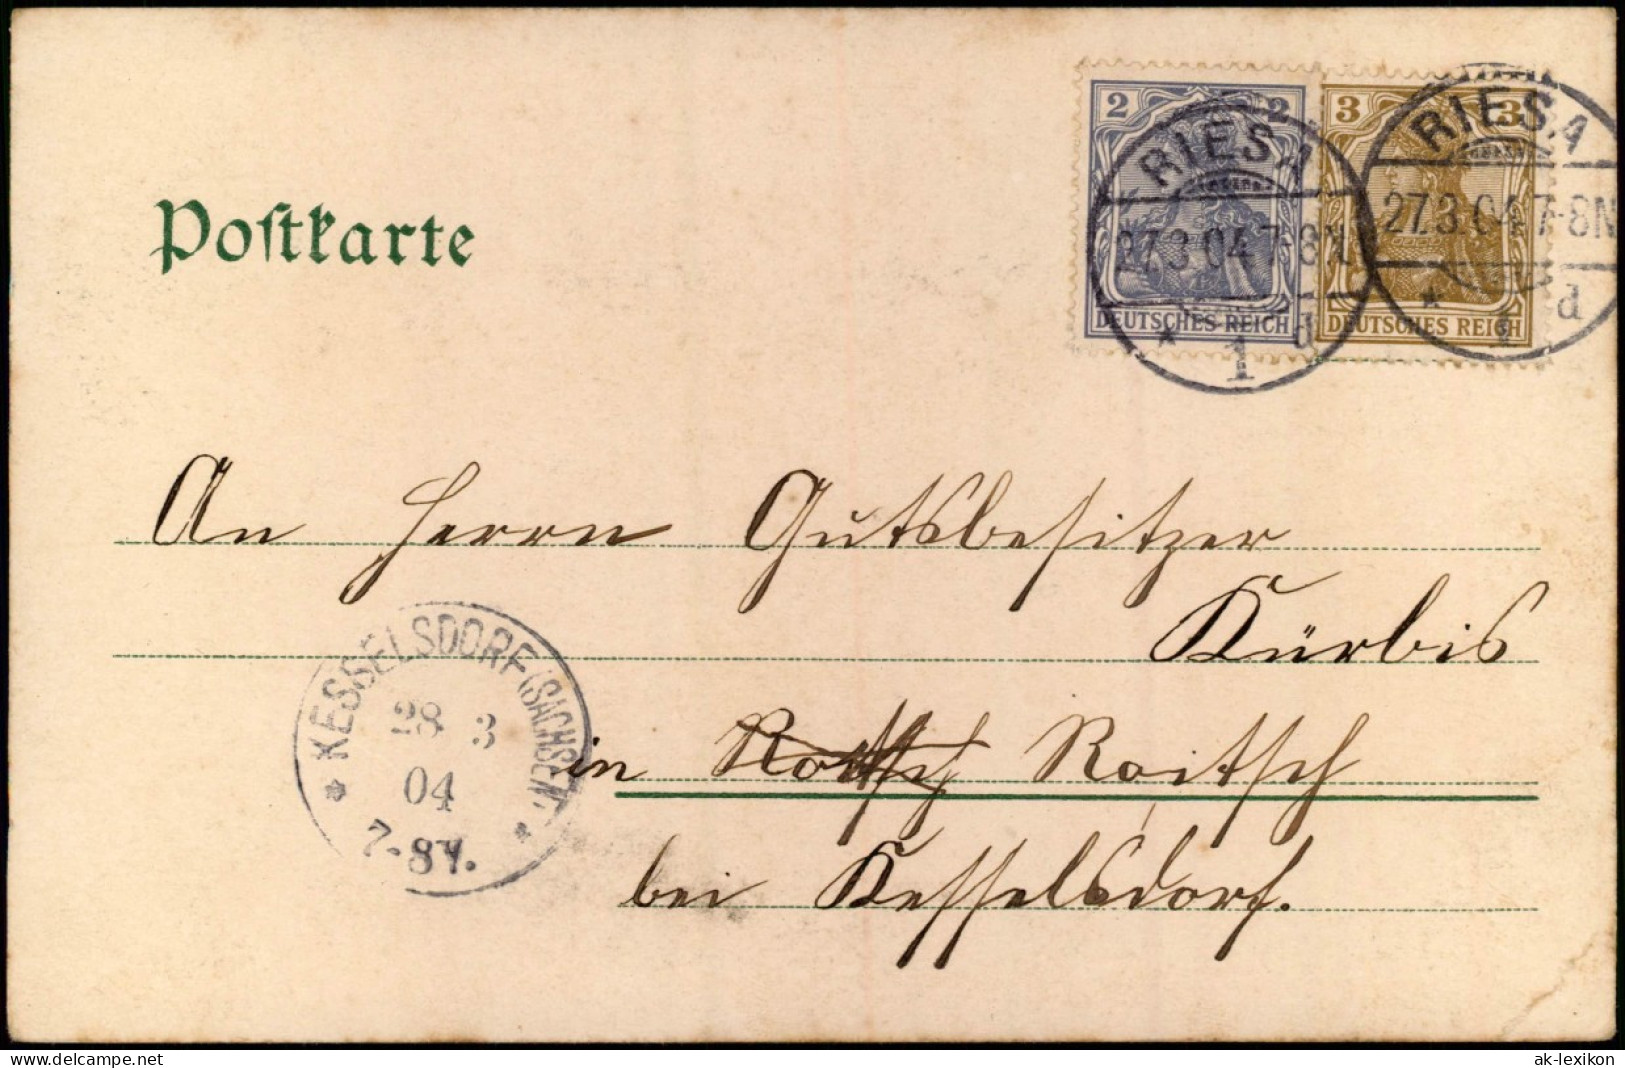 Postkarte
2 2
DEUTSCHES REICH
3 3
DEUTSCHES REICH
RIESA
27.3.04.7-8N
* 1 d
RIESA
27.3.04.7-8N
* 1 d
An Herrn Gutsbesitzer
Kürbis
in Roitsch
bei Kesselsdorf.
* KESSELSDORF (SACHSEN). *
28 3
04
7-8V.
delcampe.net
ak-lexikon